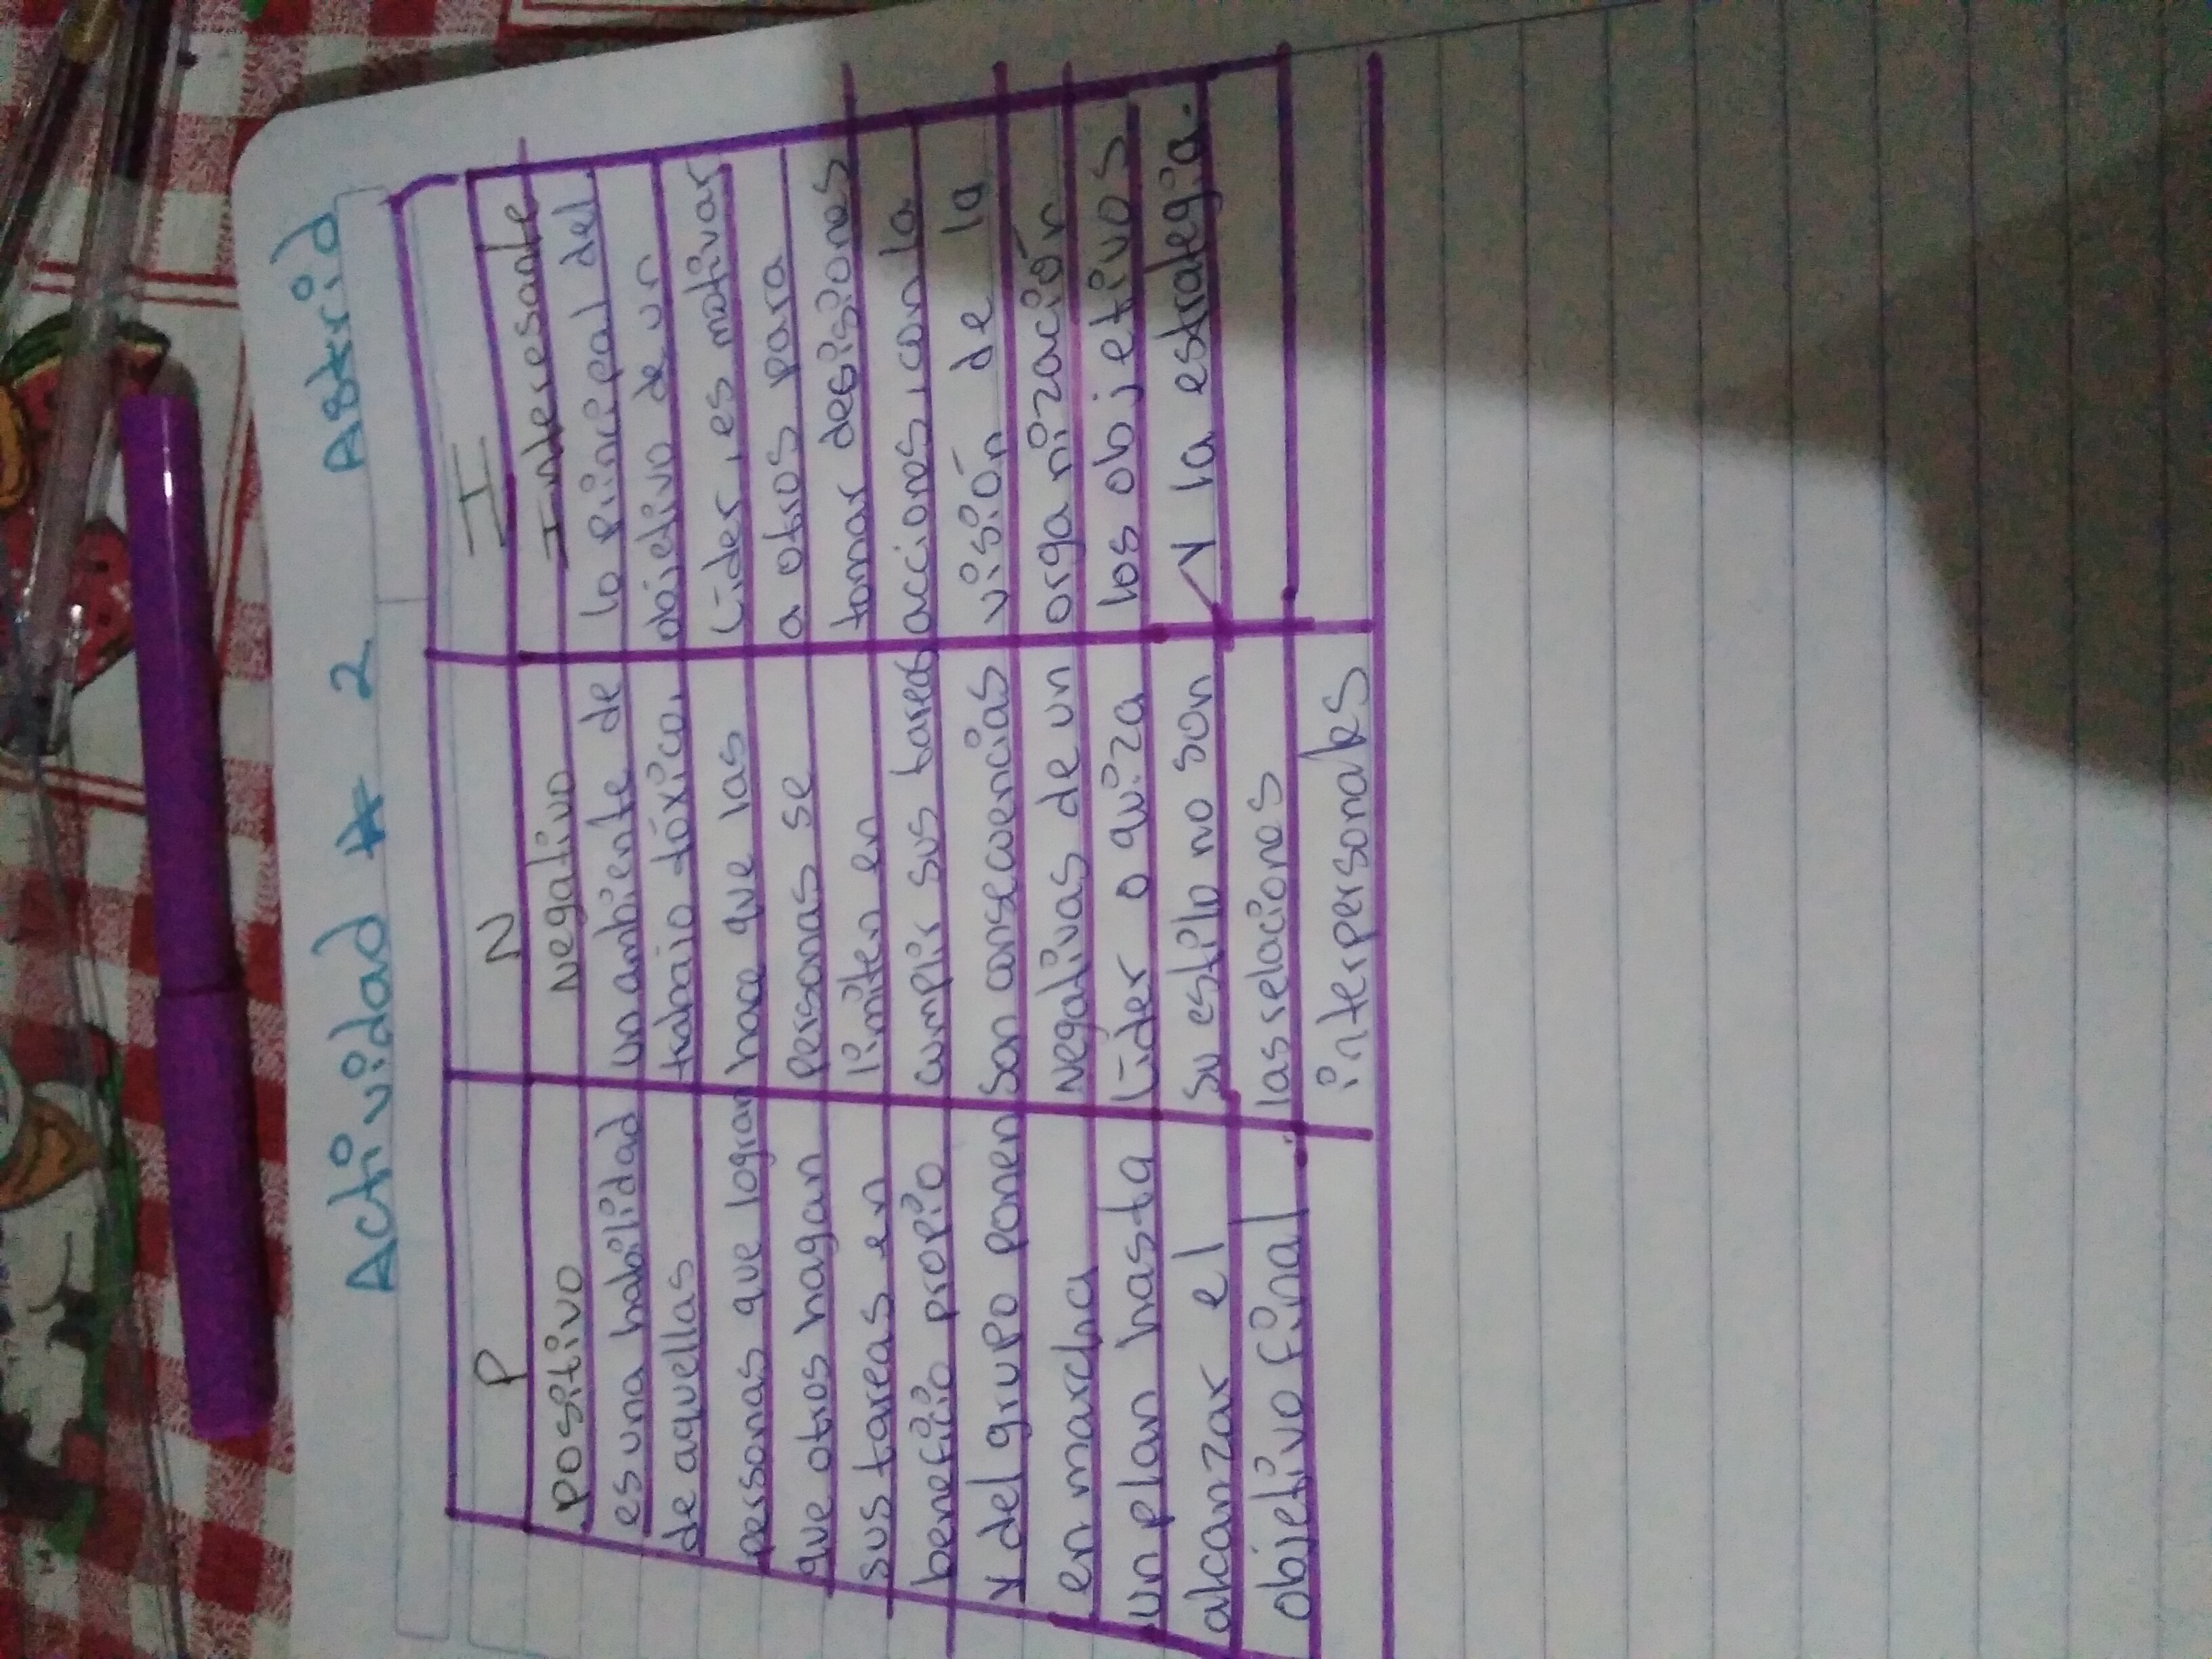 Actividad # 2 Astrid
P
Positivo
es una habilidad
de aquellas
personas que logran
que otros hagan
sus tareas en
beneficio propio
y del grupo ponen
en marcha
un plan hasta
alcanzar el
objetivo final.
N
Negativo
un ambiente de
trabajo tóxico,
hace que las
personas se
limiten en
cumplir sus tareas
son consecuencias
negativas de un
Lider o quiza
su estilo no son
las relaciones
interpersonales
I
Interesante
lo pincipal del
objetivo de un
Lider, es motivar
a otros para
tomar desisiones
acciones, con la
visión de la
organización
los objetivos
y la estrategia.